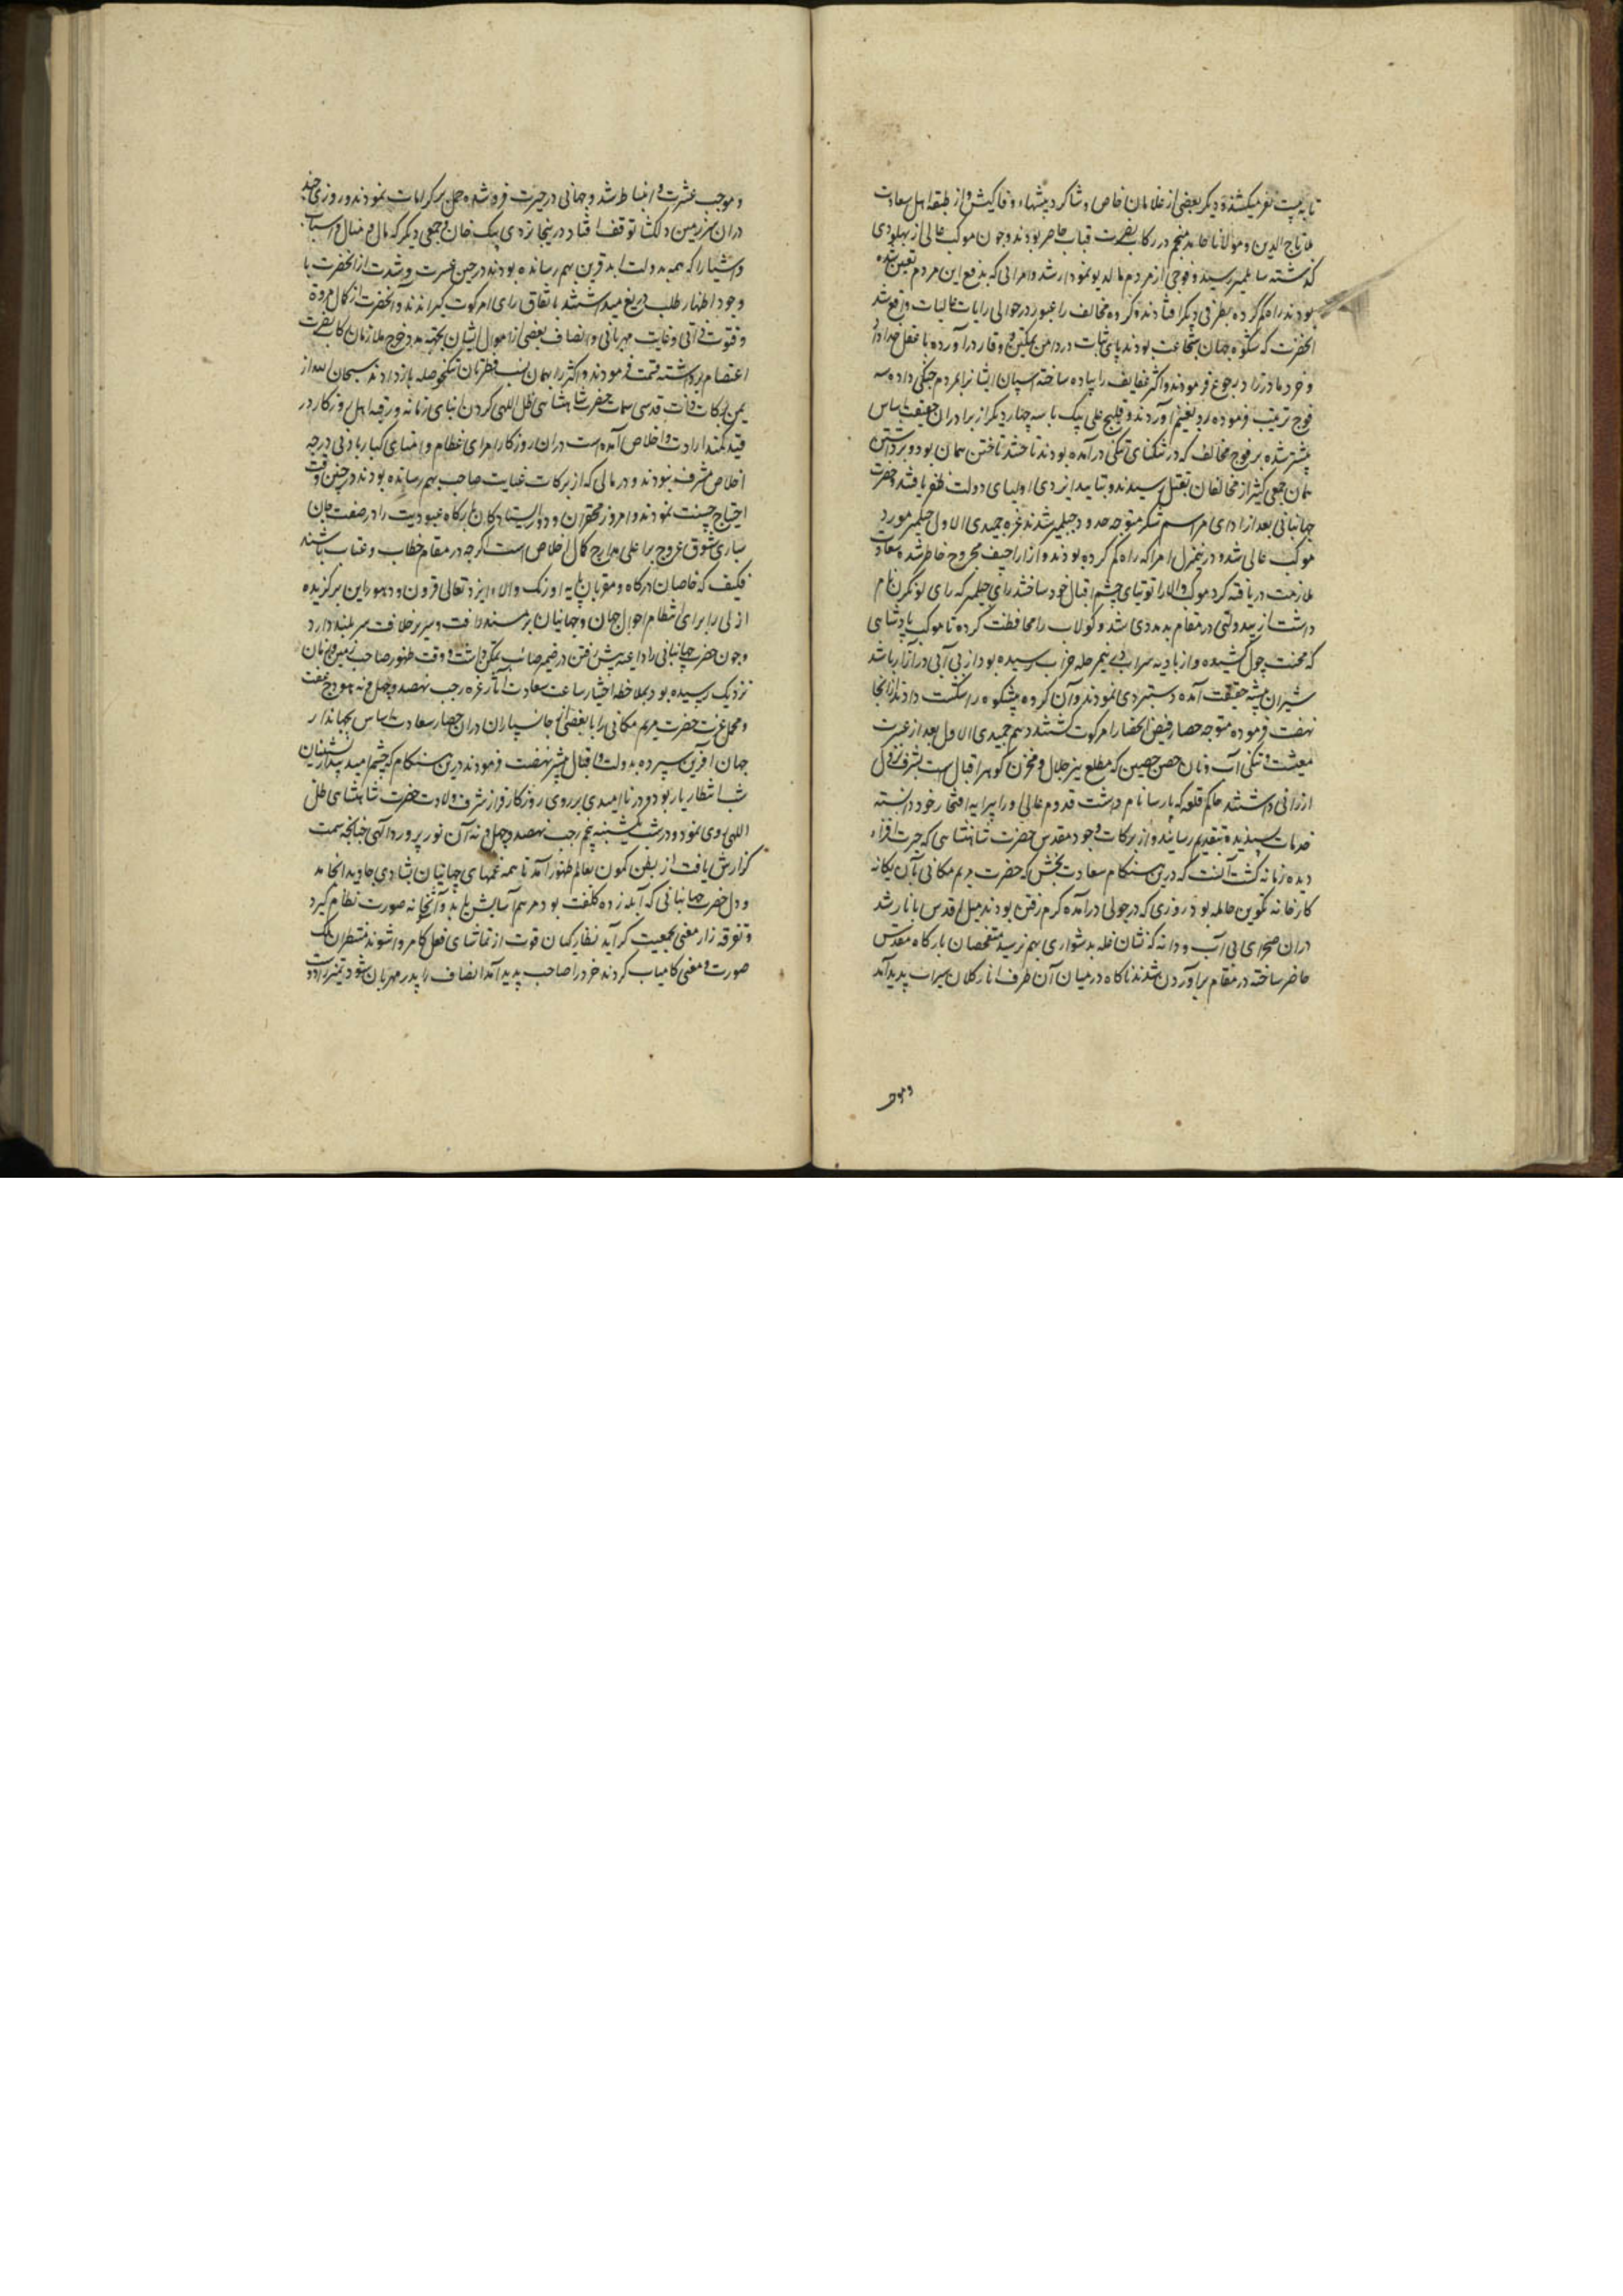 تا به بیست نفر میکشند و دیگر بعضی از غلامان خاص و شاگرد پیشهاء وفاکیش و از طبقه اهل سعادت
ملا تاج الدین و مولانا چاند منجم در رکاب نصرت قباب حاضر بودند و چون موکب عالی از پهلودی
گذشته بسا تلمیر رسید و فوجی از مردم مالدیو نمودار شد و امرائی که بدفع این مردم تعین شده
بودند راه گم کرده بطرفی دیگر افتادند و گروه مخالف را عبور در حوالی رایات عالیات واقع شد
آنحضرت که شکوه جهان شجاعت بودند پای ثبات در دامن تمکین و وقار در آورده با عقل خداداد
و خرد مادرزاد رجوع فرمودند و اکثر عفایف را پیاده ساخته اسپان ایشانرا بمردم جنگی داده سه
فوج ترتیب فرموده رو بغنیم آوردند و شیخ علی بیک با سه چهار دیگر از برادران حقیقت اساس
پیشتر شده بر فوج مخالف که در تنگنای تنگی در آمده بودند تاختند تاختن همان بود و برداشتن
همان جمعی کثیر از مخالفان بقتل رسیدند و بتایید ایزدی اولیای دولت ظفر یافتند و حضرت
جهانبانی بعد از ادای مراسم شکر متوجه حدود جیلمیر شدند غره جمیدی الاول جیلمیر مورد
موکب عالی شد و در ینمنزل امرا که راه گم کرده بودند و از اراجیف مجروح خاطر شده سعادت
ملازمت دریافته گرد موکب والا را توتیای چشم اقبال خود ساختند رای جیلمیر که رای لونکرن نام
داشت از بیدولتی در مقام بدمددی شد و کولاب را محافظت کرده تا موکب پادشاهی
که محنت چول کشیده و از بادیه سراب درینمرحله خراب رسیده بود از بی آبی در آزار باشد
شیران بیشه حقیقت آمده دستبردی نمودند و آن گروه بیشکوه را شکست دادند از آنجا
نهضت فرموده متوجه حصار فیض انحصار امرکوت گشتند دهم جمیدی الاول بعد از عسرت
معیشت و تنگی آب و نان حصن حصین که مطلع نیر جلال و مخزن گوهر اقبال است بشرف نزول
ارزانی داشتند حاکم قلعه که پارسا نام داشت قدوم عالی را پیرایه افتخار خود دانسته
خدمات پسندیده بتقدیم رسانید و از برکات وجود مقدس حضرت شاهنشاهی که حیرت افزاء
دیده زمانه گشت آنست که درین هنگام سعادت بخش که حضرت مریم مکانی بآن یگانه
کارخانه تکوین حامله بود روزی که در چولی در آمده گرم رفتن بودند میل اقدس بانار شد
دران صحرای بی آب و دانه که نشان غله بدشواری بهم نرسید متفحصان بارگاه مقدس
حاضر ساخته در مقام برآوردن شدند ناگاه در میان آن ظرف انار کلان سیراب پدید آمد
و موجب
و موجب عشرت و انبساط شد و جهانی در حیرت فرو شده حمل بر کرامات نمودند و روزی چند
دران سرزمین دلگشا توقف افتاد درینجا تردی بیک خان و جمعی دیگر که مال و منال و اسباب
و اشیا را که همه بدولت ابد قرین بهم رسانده بودند در حین عسرت و شدت از آنحضرت با
وجود اظهار طلب دریغ میداشتند باتفاق رای امرکوت گیرانندند و آنحضرت از کمال مروة
و فتوت ذاتی و غایت مهربانی و انصاف بعضی از اموال ایشان بجهته مدد خرج ملازمان رکاب نصرت
اعتصام برداشته قسمت فرمودند و اکثر را بهمان پست فطرتان تنگحوصله باز دادند سبحان الله از
یمن برکات ذات قدسی سمات حضرت شاهنشاهی ظل اللهی گردن ابنای زمانه و رقبه اهل روزگار در
قید کمند ارادت و اخلاص آمده است دران روزگار امرای عظام و امنای کبار بادنی درجه
اخلاص مشرف نبودند و در مالی که از برکات عنایت صاحب بهم رسانده بودند در چنین وقت
احتیاج خست نمودند و امروز محقران و دور ایستادگان بارگاه عبودیت را در صفت جان
سپاری شوق عروج بر اعلی مدارج کمال اخلاص است اگرچه در مقام خطاب و عتاب باشند
فکیف که خاصان درگاه و مقربان پایه اورنگ والا ایزد تعالی قرون و دهور این برگزیده
ازلی را برای انتظام احوال جهان و جهانیان بر مسند رافت و سریر خلافت سربلند دارد
و چون حضرت جهانبانی را داعیه پیش رفتن در ضمیر صائب تمکن داشت و وقت ظهور صاحب زمین و زمان
نزدیک رسیده بود بملاحظه اختیار ساعت سعادت آثار غره رجب نهصد و چهل و نه هودج عفت
و محمل عزت حضرت مریم مکانی را با بعضی از جانسپاران دران حصار سعادت اساس بجهاندار
جهان آفرین سپرده بدولت و اقبال پیشتر نهضت فرمودند درین هنگام که چشم امید بیدار نشینان
شب انتظار باز بود و در ناامیدی بر روی روزگار فراز شرف ولادت حضرت شاهنشاهی ظل
اللهی روی نمود و در شب یکشنبه پنجم رجب نهصد و چهل و نه آن نور پرورد الهی چنانچه سمت
گزارش یافت از بطن کمون بعالم ظهور آمد تا همه غمهای جهانیان بشادی جاوید انجامد
و دل حضرت جهانبانی که آبله زده کلفت بود مرهم آسایش یابد و آشنا نه صورت نظام گیرد
و تفرقه زار معنی بجمعیت گراید نظارگیان قوت از تماشای فعل کامروا شوند منتظران ملک
صورت و معنی کامیاب گردند خرد را صاحب پدید آمد انصاف را پدر مهربان شود تمیز را دوست